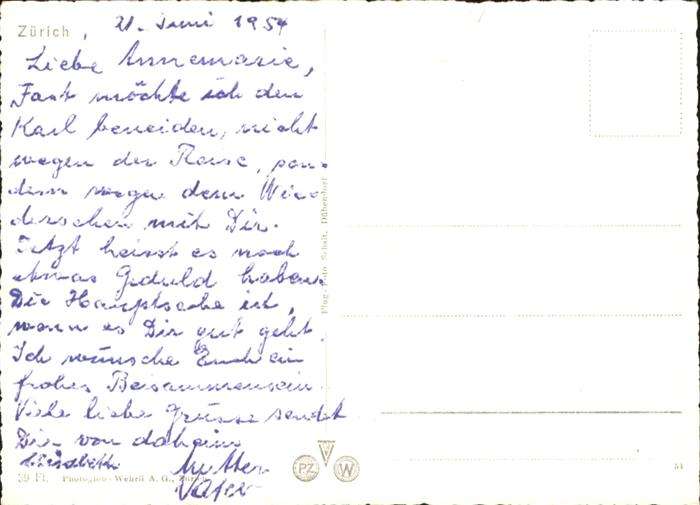 Zürich, 21. Juni 1954
Liebe Annemarie,
Fast möchte ich den
Karl beneiden, nicht
wegen der Reise, son-
dern wegen dem Wie-
dersehen mit Dir.
Jetzt heisst es noch
etwas Geduld haben.
Die Hauptsache ist,
wenn es Dir gut geht.
Ich wünsche Euch ein
frohes Beisammensein.
Viele liebe Grüsse sendet
Dir von daheim
Elisabeth Mutter
Vater
39 Fl. Photoglob-Wehrli A. G., Zürich
Flug-Foto Schait, Dübendorf
PZ
W
54